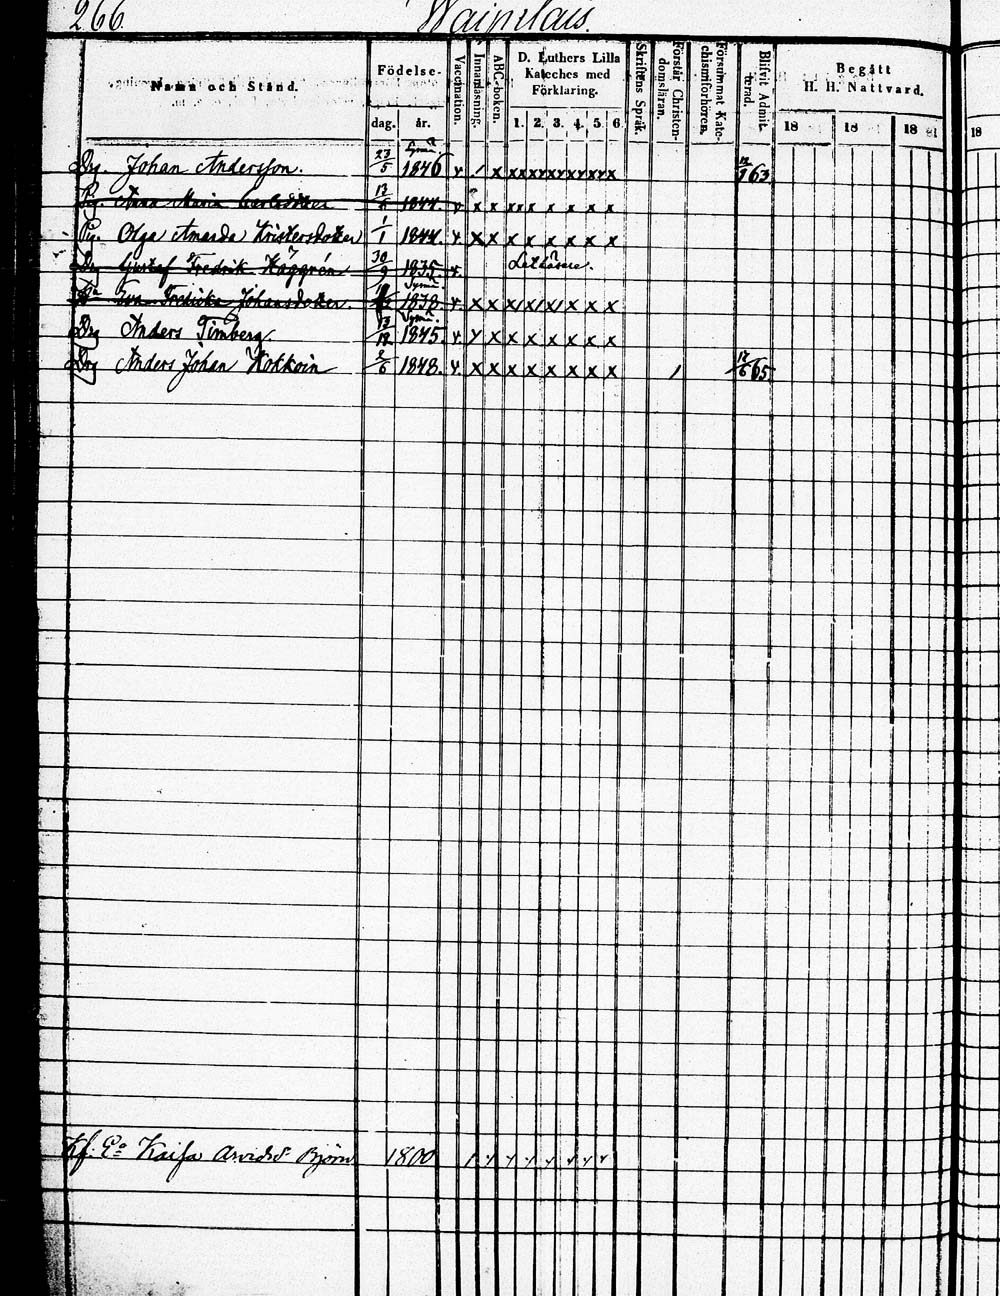 266. Wainilais.
Namn och Stånd. Födelse- dag. år. Vaccination. Innanläsning. ABC-boken. D. Luthers Lilla Kateches med Förklaring. 1. 2. 3. 4. 5. 6. Skriftens Språk. Förstår Christendomsläran. Försummat Katechismiförhören. Blifvit Admitterad. Begått H. H. Nattvard. 18 18 18 81 18
Drg. Johan Andersson. 23/5 1846 x / x x x x x x x 63
Pig. Anna Maria Carlsdotter 13 1844. x x x x x x x x x
Pig. Olga Amanda Kristersdotter 1/1 1844. x x x x x x x x x
Drg Gustaf Fredrik Häggrén 30/9 1835. x.
Eva Fredrika Johansdotter. 1838 x x x x x x x x x
Drg Anders Timberg. 13/12 1845. x x x x x x x x x
Drg Anders Johan Kokkoin 2/6 1848. x x x x x x x x x / 17/6 65.
Kf. Ea Kaisa Arvidsd Björn 1800